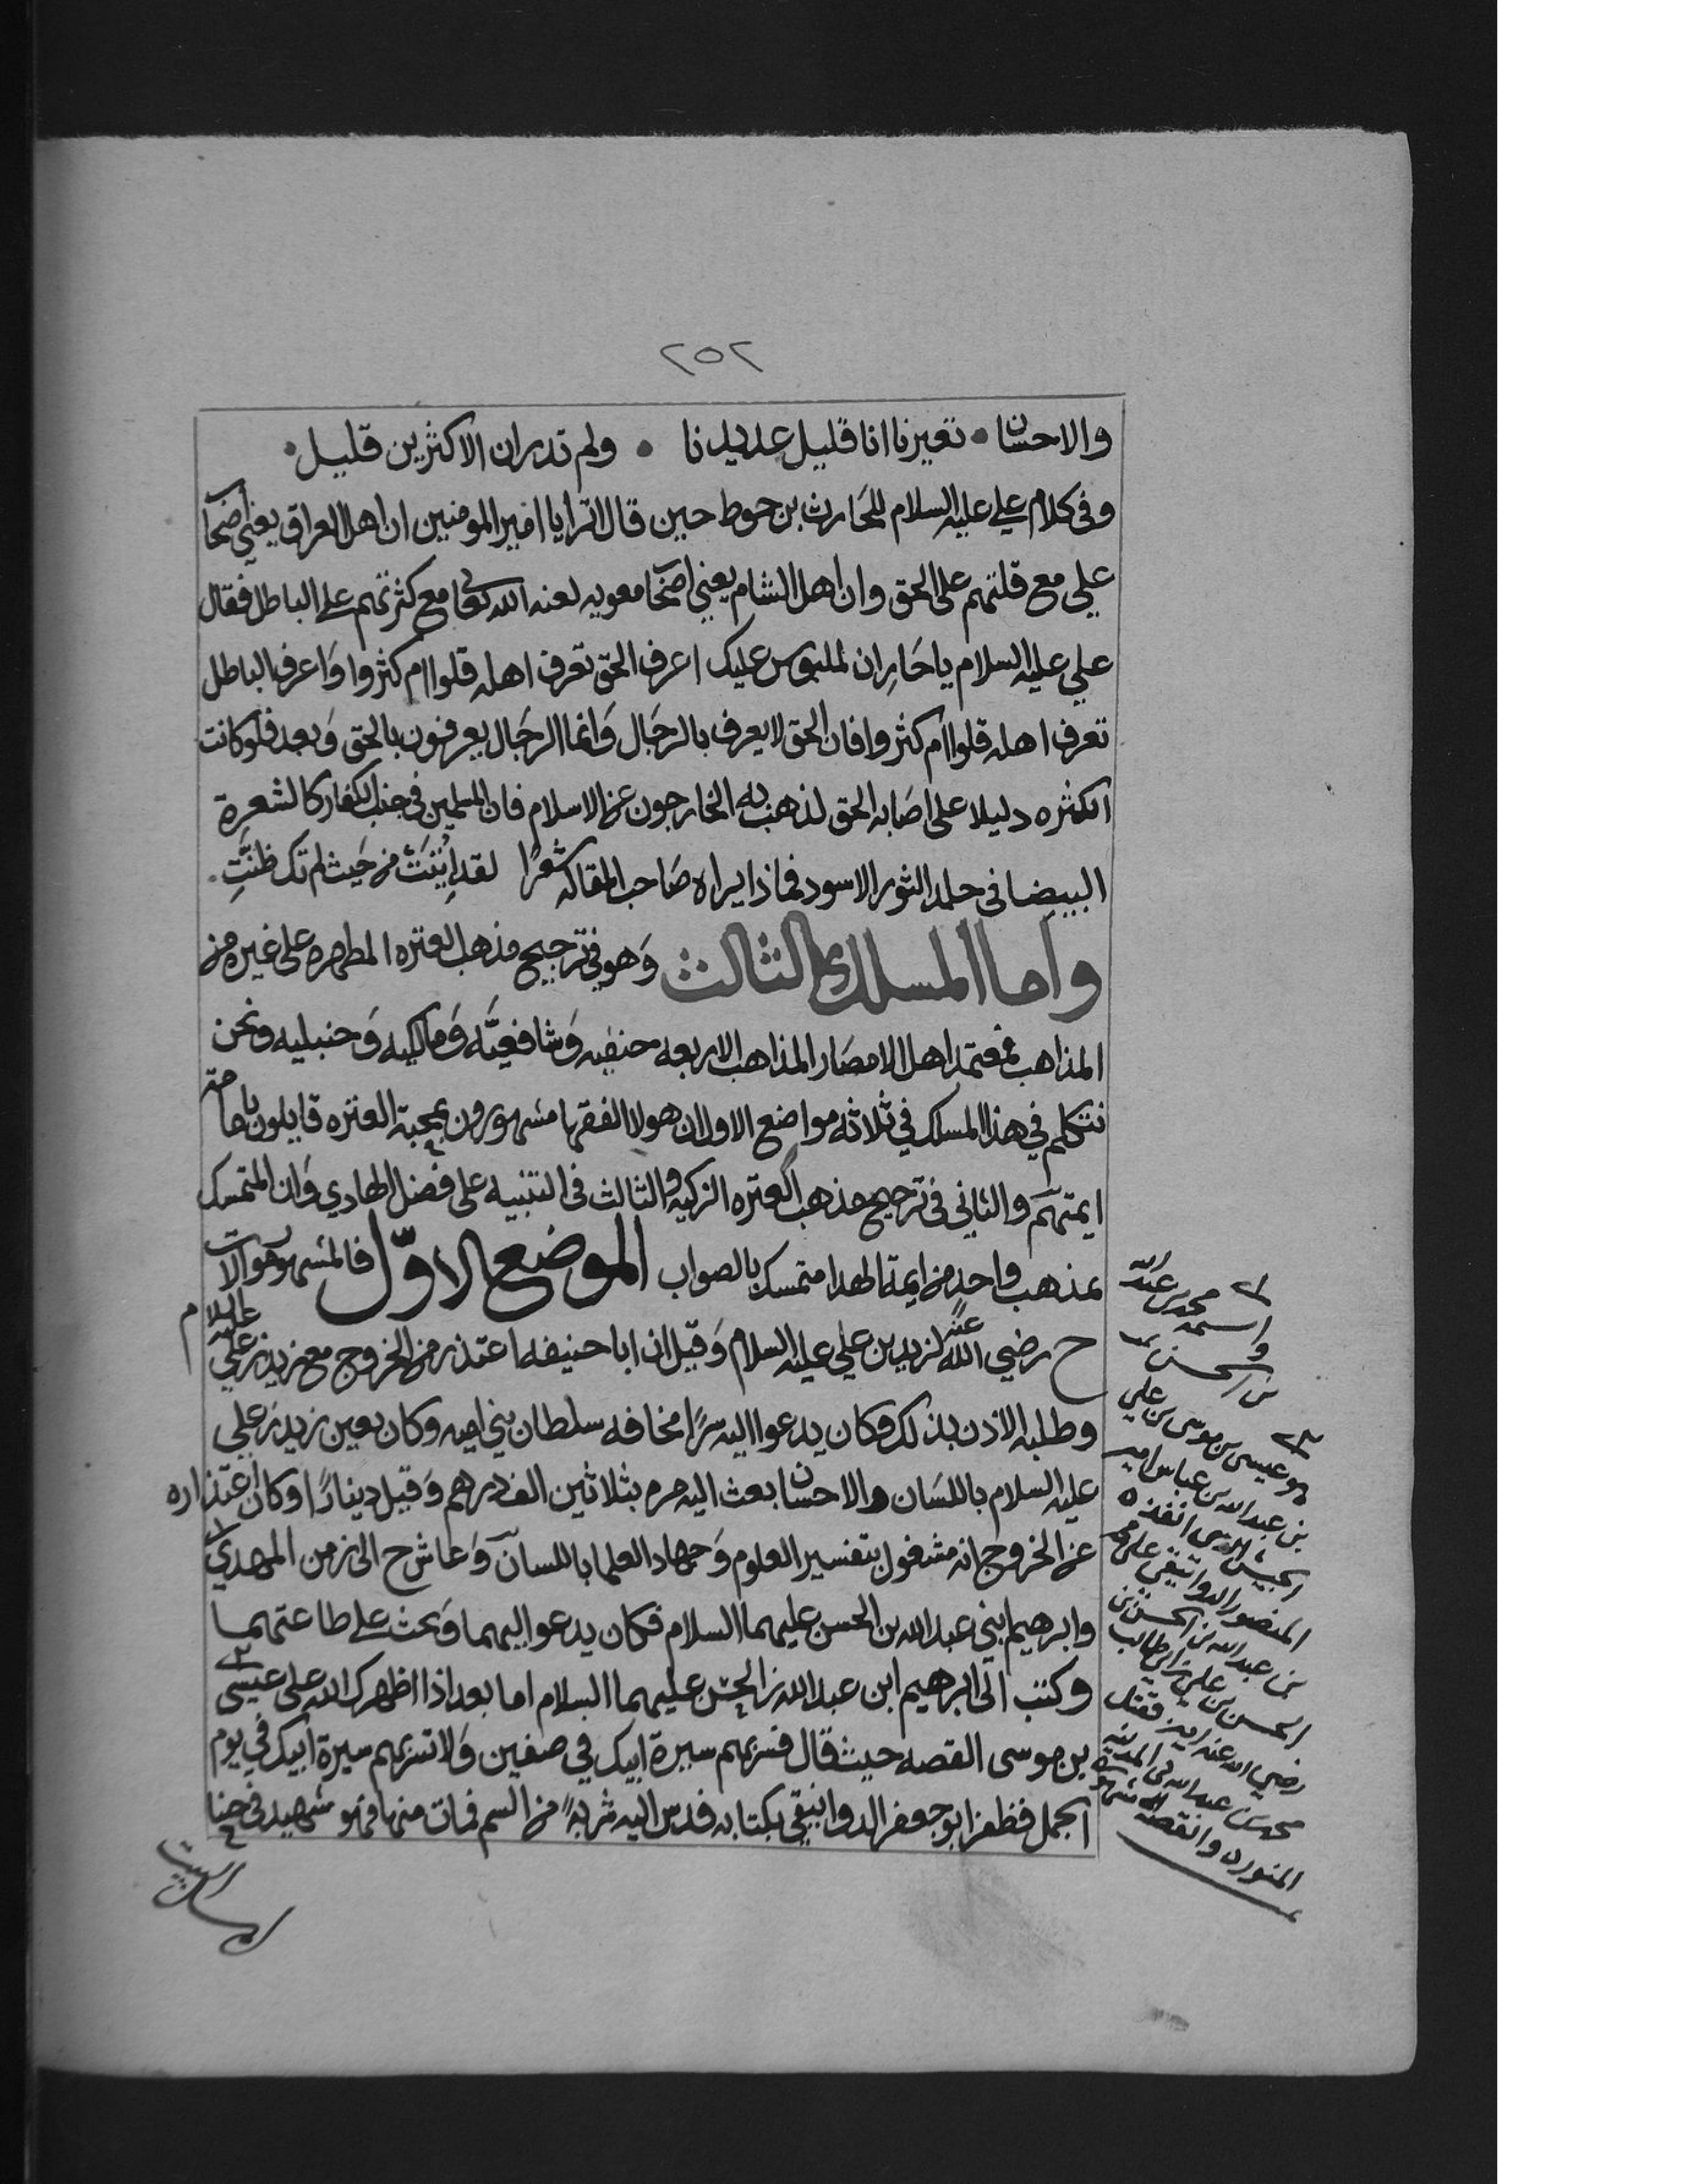 ٢٥٢
والاحسان • تعيرنا انا قليل عديدنا • ولم تدر ان الاكثرين قليل •
وفي كلام علي عليه السلام للحارث بن حوط حين قال اترا يا امير المومنين ان اهل العراق يعني اصحاب
علي مع قلتهم على الحق وان اهل الشام يعني اصحاب معويه لعنه الله تعالى مع كثرتهم على الباطل فقال
علي عليه السلام يا حار ان لملبوس عليك اعرف الحق تعرف اهله قلوا ام كثروا واعرف الباطل
تعرف اهله قلوا ام كثروا فان الحق لا يعرف بالرجال وانما الرجال يعرفون بالحق وبعد فلو كانت
الكثره دليلا على اصابه الحق لذهب به الخارجون عن الاسلام فان المسلمين في جنب الكفار كالشعرة
البيضا في جلد الثور الاسود فماذا يراه صاحب المقاله شعرًا لقد اُتيتَ من حيث لم تك ظنَّتِ •
واما المسلك الثالث وهو في ترجيح مذهب العتره المطهره على غيره من
المذاهب فمعتمد اهل الامصار المذاهب الاربعه حنفيه وشافعيَّه ومالكيه وحنبليه ونحن
نتكلم في هذا المسلك في ثلاثة مواضع الاول ان هولا الفقها مشهورون بمحبة العتره قايلون بامامة
ايمتهم والثاني في ترجيح مذهب العتره الزكيه والثالث في التنبيه على فضل الهادي وان المتمسك
بمذهب واحد من ايمة الهدا متمسك بالصواب الموضع الاوّل فالمشهور موالات
ح رضي الله عنه لزيد بن علي عليه السلام وقيل ان ابا حنيفه اعتذر من الخروج مع زيد بن علي عليه السلام
وطلبه الاذن بذلك وكان يدعوا اليه سرًا مخافه سلطان بني اميه وكان يعين زيد بن علي
عليه السلام باللسان والاحسان بعث اليه مره بثلاثين الف درهم وقيل دينارًا وكان اعتذاره
عن الخروج انه مشغول بتفسير العلوم وجهاد العلما باللسان وعاش ح الى زمن المهدي ١
وابرهيم ابني عبدالله بن الحسن عليهما السلام فكان يدعو اليهما ويحث على طاعتهما
وكتب الى ابرهيم ابن عبدالله بن الحسن عليهما السلام اما بعد اذا اظهرك الله على عيسى ٢
بن موسى القصه حيث قال فسر بهم سيرة ابيك في صفين ولا تسر بهم سيرة ابيك في يوم
الجمل فظفر ابو جعفر الدوانيقي بكتابه فدس اليه شربةً من السم فمات منها فهو شهيد في حب
اهل البيت
واسمه محمد بن عبدالله
بن الحسن
هو عيسى بن موسى بن علي
بن عبدالله بن عباس امير
الجيش الذي انفذه
المنصور الدوانيقي على محمد
بن عبدالله بن الحسن بن
الحسن بن علي بن ابي طالب
رضي الله عنه فقتل
محمد بن عبدالله في المدينه
المنوره والقصه مشهوره